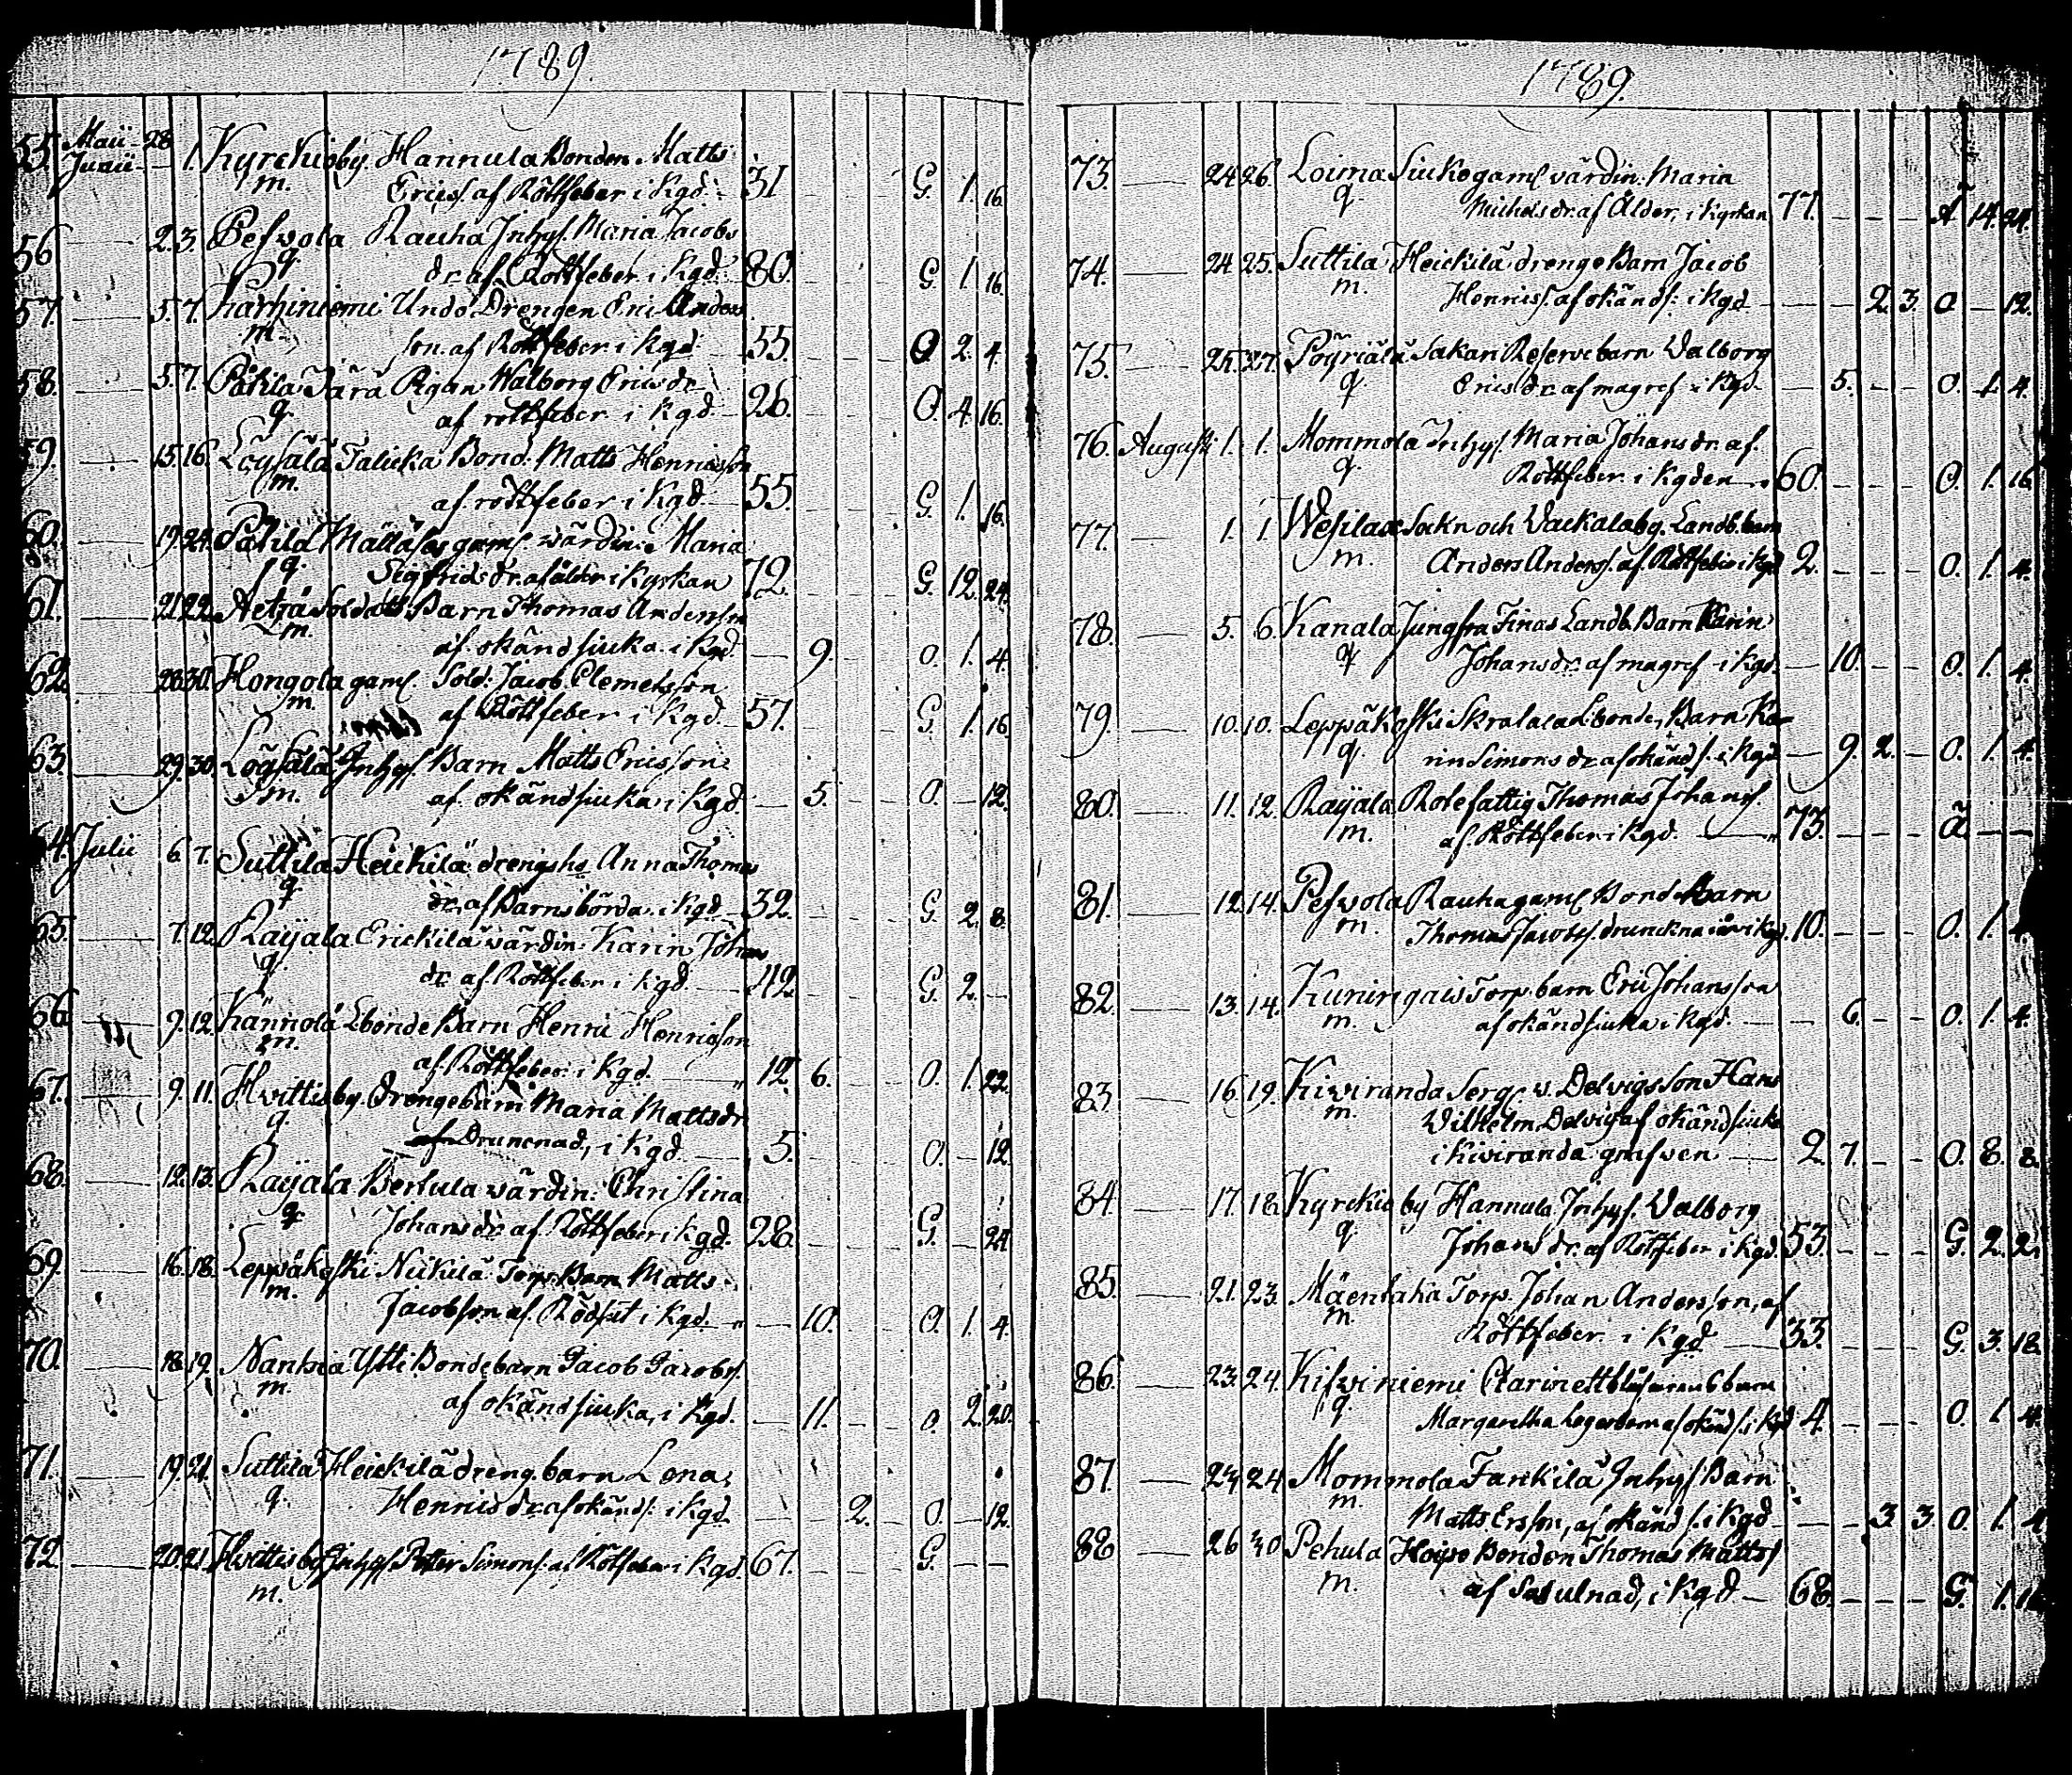 1789.
55. Maii 28 Junii 1. Kyrckioby. Hannula Bonden Matts
m. Ericss. af Röttfeber i Kgd. 31 G. 1. 16.
56 2. 3. Pesvola Rauha Inhys. Maria Jacobs
q. dr. af Röttfeber i Kgd. 80. G 1. 16.
57. 5. 7. Karhiniemi Undo Drengen Eric Anders
m. son. af Röttfeber i Kgd 55. O 2. 4.
58. 5. 7. Pärilä Järä Pigan Walborg Erics dr
q. af röttfeber i Kgd 26. O. 4. 16.
59. 15. 16. Löysälä Talicka Bond. Matts Henricsson
m. af röttfeber i Kgd 55. G. 1. 16.
60. 19. 24. Mälläs gaml. värdin: Maria
q. Sigfrids dr. af ålder i Kyrkan 72. G. 12. 24.
61. 21. 22. Aeträ Soldats Barn Thomas Andersson
m. af okänd siuka i Kgd. 9. O. 1. 4.
62. 28. 30. Hongola gaml Sold: Jacob Clemetsson
m. af Röttfeber i Kgd. 57. G. 1. 16.
63. 29. 30. Löysälä Inhys. Barn Matts Ericsson
m. af okänd siuka i Kgd. 5. O. 12.
64. Julii 6. 7. Suttila Heickilä drengshu Anna Thomas
q dr. af Barnsbörda i Kgd 32. G. 2. 8.
65. 7. 12. Raijala Erickilä värdin: Karin Johans
q. dr af Röttfeber i Kgd. 42 G. 2.
66. 9. 12. Kännölä Lbonde Barn Henric Henricsson
m. af Röttfeber i Kgd. 12. 6. O. 1. 22.
67. 9. 11. Hvittisby. Drengebarn Maria Mattsdr
q. Druncnad, i Kgd. 5. O. 12.
68. 12. 13. Raijala Bertula värdin: Christina
q Johans dr af Röttfeber i Kgd. 28. G. 24
69. 16. 18. Leppäkoski Nickilä Torp. Barn Matts
m. Jacobsson af Rödsot i Kgd. 10. O. 1. 4.
70. 18. 19. Nanhia Ytti Bondebarn Jacob Jacobss.
m. af okänd siuka, i Kgd. 11. O. 2. 20.
71. 19. 21. Suttila Heickilä dreng. barn Lena
q. Henrics dr af okänd s. i Kgd. 2. O. 12.
72. 20. 21. Hvittisby Inhys Petter Simons: af Röttfeber i Kgd. 67. G.
m.
1789.
73. 24 26. Loima Siuke gaml värdin: Maria
q. Michels dr. af Ålder, i Kyrkan 77. Ä 14. 24.
74. 24. 25. Suttila Heickilä drenge Barn Jacob
m. Henricss. af okänd s: i Kgd 2. 3. O 12.
75. 25. 27. Pöyriälä Sakari Reserve barn Valborg
q Erics dr. af magref i Kgd. 5. O. 1. 4.
76. Augusti 1. 1. Mommola Inhys. Maria Johans dr. af
q. Röttfeber i Kgden 60. O. 1. 16
77. 1. 1. Wesilax Sokn och Vackalaby. Landb. barn
m. Anders Anderss. af Röttfeber i Kgd 2. O. 1. 4.
78. 5. 6. Kanala Jungfra Finas Landb. Barn Karin
q Johans dr. af magref i Kgd. 10. O. 1. 4.
79. 10. 10. Leppäkoski Skralaca Lbonde, Barn Ka-
q. rin Simons dr af okänd s. i Kgd 9. 2. O. 1. 4.
80. 11. 12. Raijala Rotefattig Thomas Johanss.
m. af Röttfeber i Kgd. 73. Ä.
81. 12. 14. Pesvola Rauha gaml Bonde Barn
m. Thomas Jacobss. drunckna i ån i Kgd. 10. O. 1.
82. 13. 14. Kuningais Torp. barn Eric Johansson
m. af okänd siuka i Kgd. 6. O. 1. 4.
83. 16. 19. Kiviranda Serg. v. Delvigs Son Hans
m. Vilhelm Delvig af okänd siuka
i Kiviranda grafven 2 7. O. 8. 8.
84. 17. 18. Kyrckio by Hannula Inhys. Valborg
q. Johans dr. af Röttfeber i Kgd. 53. G. 2. 2.
85. 21. 23. Mäenhaka Torp. Johan Andersson, af
m. Röttfeber i Kgd 33. G. 3. 18.
86. 23. 24. Kifviniemi Clarinettblåsarens barn
q. Margaretha af okänd s. i Kgd 4. O. 1. 4.
87. 23. 24 Mommola Fanckilä Inhys Barn
m. Matts Ersson, af okänd s. i Kgd 3 3 O. 1. 4
88 26 30 Pehula Hoipo Bonden Thomas Matts
m. af Svulnad, i Kgd 68. G. 1.